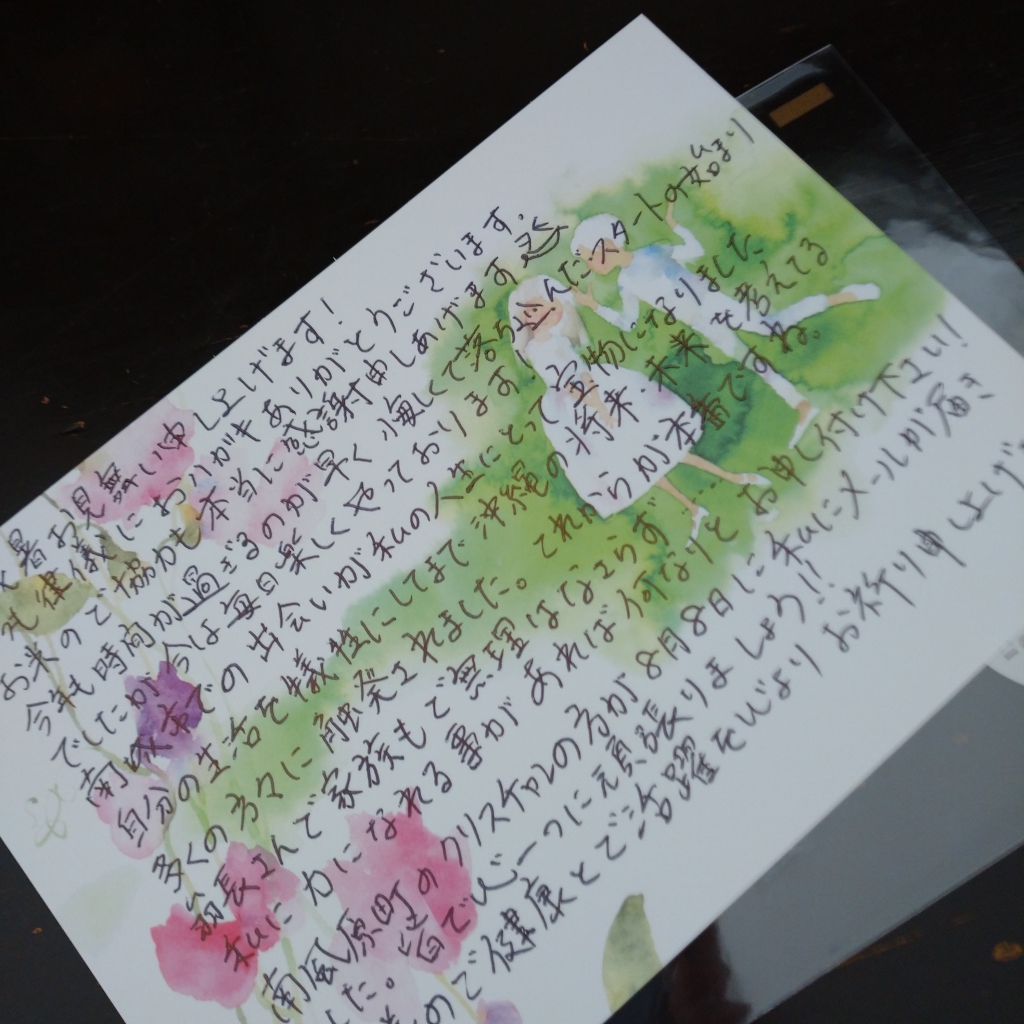 暑お見舞い申し上げます!
礼律儀におハガキありがとうございます。
お米のご協力も本当に感謝申しあげます
今年も時間が過ぎるのが早く悔しくて落ち込んだスタートの始まり
でしたが今は毎日楽しくやっております
南城市での出会いが私の人生にとって宝物になりました
自分の生活を犠牲にしてまで沖縄の将来未来を考えてる
多くの方々に触発されました。これからが本番ですね。
翁長さんご家族もご無理はなさらず
私に力になれる事があれば何なりとお申し付け下さい!
南風原町のクリスチャンの方が8月8日に私にメールが届き
した。皆で心一つに頑張りましょう!!
のご健康とご活躍を心よりお祈り申し上げ